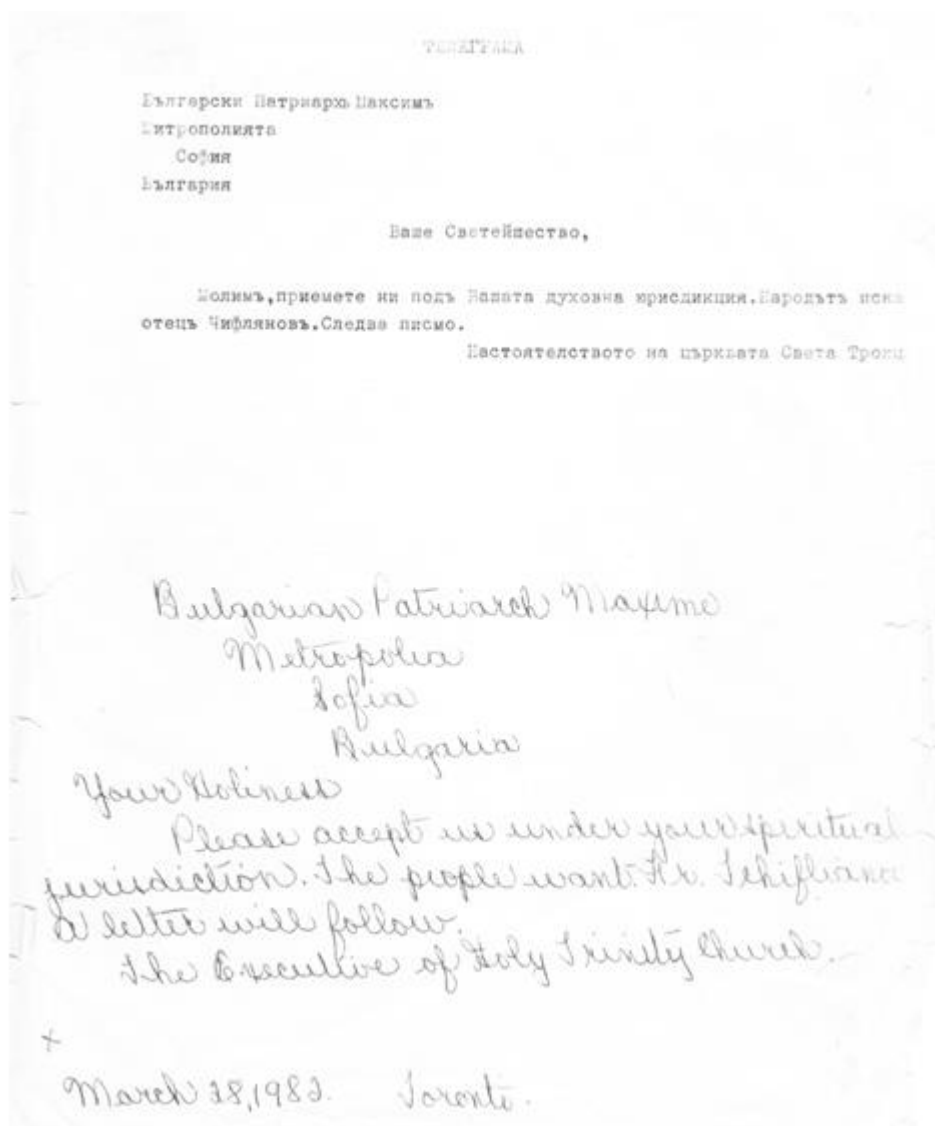 ТЕЛЕГРАМА
Български Патриархъ Максимъ
Митрополията
София
България
Ваше Светейшество,
Молимъ,приемете ни подъ Вашата духовна юрисдикция.Народътъ иска
отецъ Чифляновъ.Следва писмо.
Настоятелството на църквата Света Троиц
Bulgarian Patriarch Maxime
Metropolia
Sofia
Bulgaria
Your Holiness
Please accept us under your spiritual
jurisdiction. The people want Fr. Tchiflianov
a letter will follow.
The Executive of Holy Trinity Church.
x
March 28, 1982. Toronto.